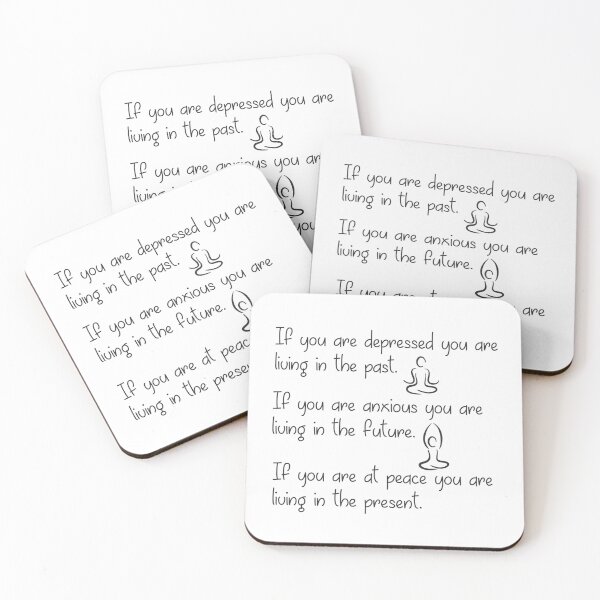 If you are depressed you are
living in the past.
If you are anxious you are
living in
you
If you are depressed you are
living in the past.
If you are anxious you are
living in the future.
If you are at are
If you are depressed you are
living in the past.
If you are anxious you are
living in the future.
If you are at peace
living in the present.
If you are depressed you are
living in the past.
If you are anxious you are
living in the future.
If you are at peace you are
living in the present.